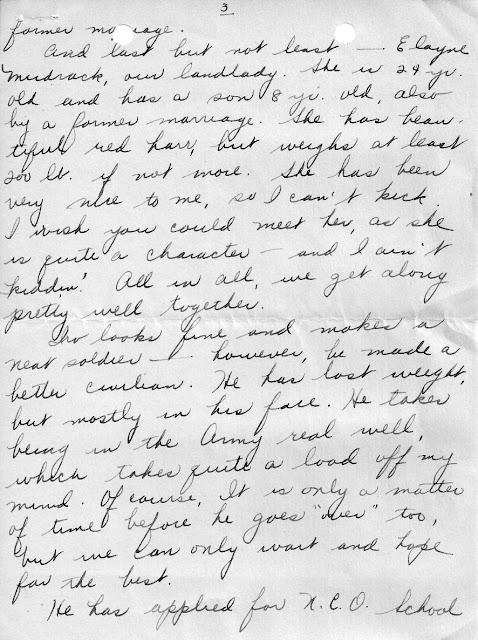 3
former marriage.
And last but not least — Elayne
Mudrack, our landlady. She is 29 yr.
old and has a son 8 yr. old, also
by a former marriage. She has beau-
tiful red hair, but weighs at least
200 lb. if not more. She has been
very nice to me, so I can't kick.
I wish you could meet her, as she
is quite a character — and I ain't
kiddin'. All in all, we get along
pretty well together.
looks fine and makes a
neat soldier — however, he made a
better civilian. He has lost weight,
but mostly in his face. He takes
being in the Army real well,
which takes quite a load off my
mind. Of course, It is only a matter
of time before he goes "over" too,
but we can only wait and hope
for the best.
He has applied for N.C.O. School